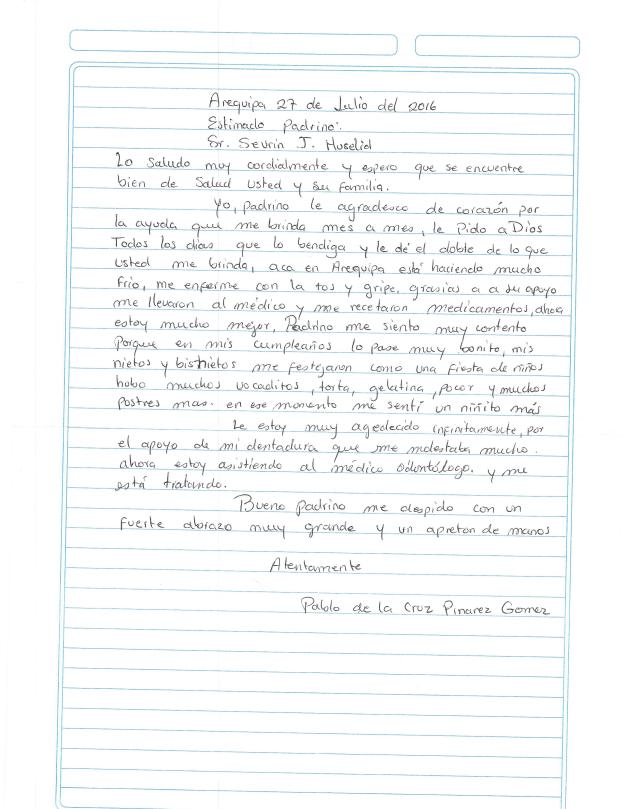 Arequipa 27 de Julio del 2016
Estimado Padrino:
Sr. Sevrin J. Huselid
Lo saludo muy cordialmente y espero que se encuentre
bien de Salud usted y su familia.
Yo, padrino le agradesco de corazón por
la ayuda que me brinda mes a mes, le Pido a Dios
Todos los días que lo bendiga y le dé el doble de lo que
usted me brinda, aca en Arequipa está haciendo mucho
frio, me enferme con la tos y gripe, grasias a a su apoyo
me llevaron al médico y me recetaron medicamentos, ahora
estoy mucho mejor, Padrino me siento muy contento
Porque en mis cumpleaños lo pase muy bonito, mis
nietos y bisnietos me festejaron como una fiesta de niños
hobo muchos vocaditos, torta, gelatina, pocor y muchos
Postres mas. en ese momento me sentí un niñito más
Le estoy muy agedecido infinitamente, por
el apoyo de mi dentadura que me molestaba mucho.
ahora estoy asistiendo al médico odontólogo. y me
está tratando.
Bueno padrino me despido con un
fuerte abrazo muy grande y un apreton de manos
Atentamente
Pablo de la Cruz Pinarez Gomez